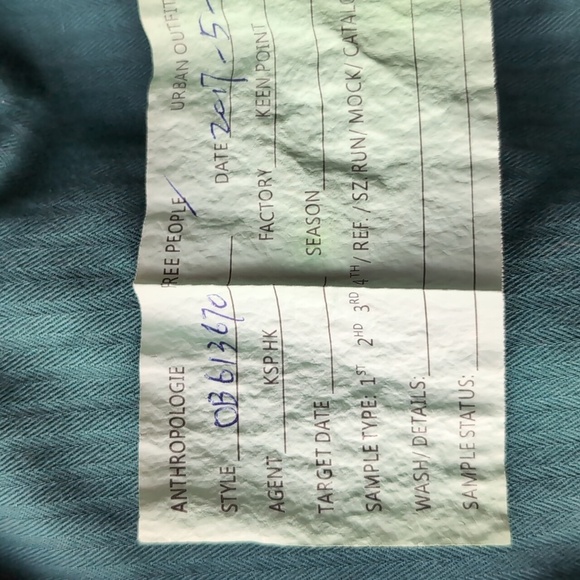 ANTHROPOLOGIE FREE PEOPLE URBAN OUTFIT
STYLE OB613670 DATE 2017-5-
AGENT KSPHK FACTORY KEEN POINT
TARGET DATE SEASON
SAMPLE TYPE: 1ST 2HD 3RD 4TH/ REF. / SZ.RUN/ MOCK/ CATALO
WASH/ DETAILS:
SAMPLE STATUS: